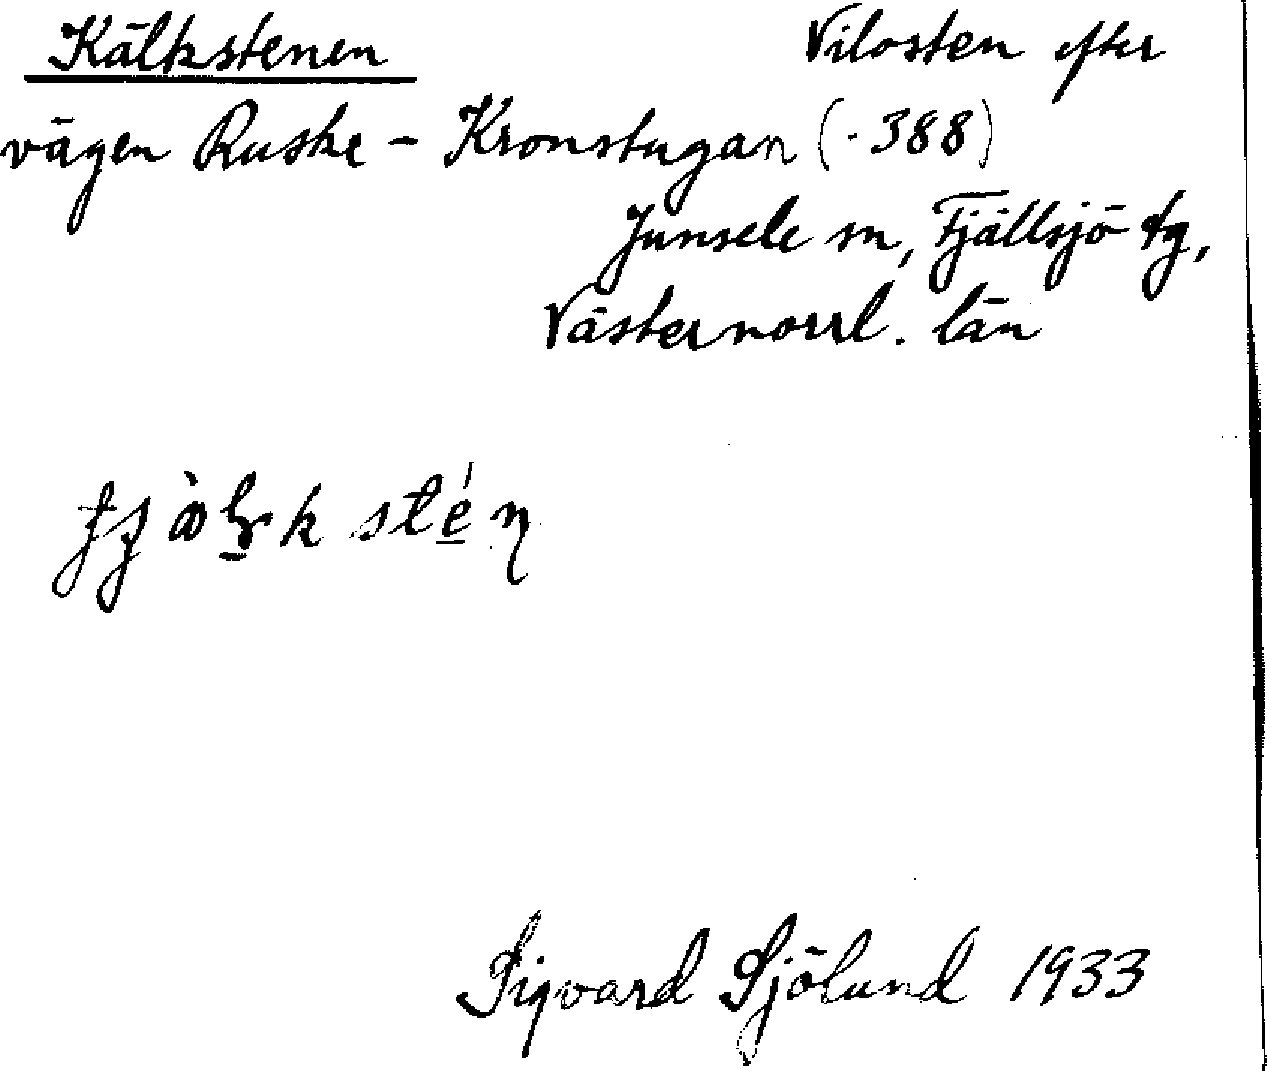 Kälkstenen Vilosten efter
vägen Ruske - Kronstugan (-388)
Junsele sn, Fjällsjö tg,
Västernorrl. län
Sigvard Sjölund 1933